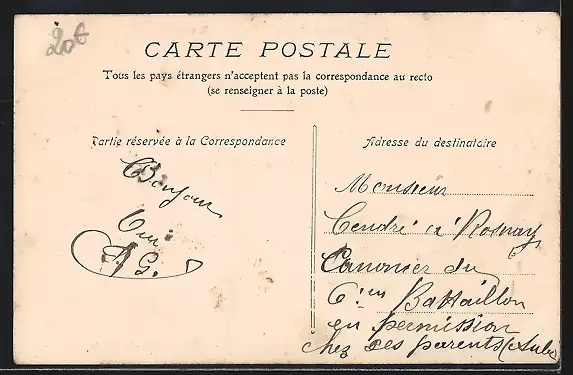 20f
CARTE POSTALE
Tous les pays étrangers n'acceptent pas la correspondance au recto
(se renseigner à la poste)
Partie réservée à la Correspondance
Adresse du destinataire
Bonjour
A. G.
Monsieur
Cendré à Rosnay
Canonier du
6ième Battaillon
en permission
chez ses parents (Aube)